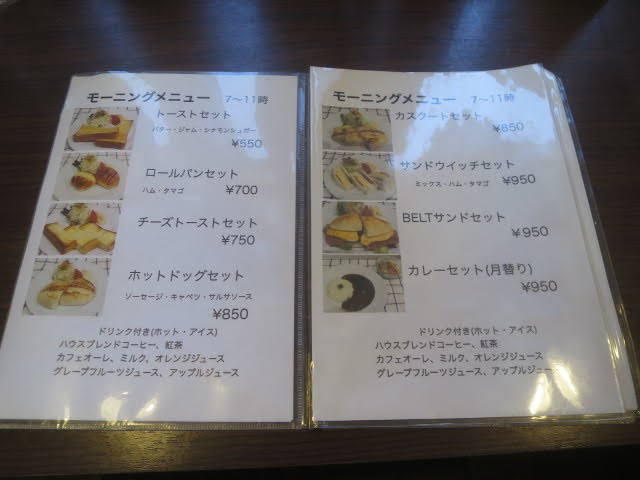 モーニングメニュー　7〜11時
トーストセット
バター・ジャム・シナモンシュガー
¥550
ロールパンセット
ハム・タマゴ
¥700
チーズトーストセット
¥750
ホットドッグセット
ソーセージ・キャベツ・サルサソース
¥850
ドリンク付き(ホット・アイス)
ハウスブレンドコーヒー、紅茶
カフェオーレ、ミルク、オレンジジュース
グレープフルーツジュース、アップルジュース
モーニングメニュー　7〜11時
カスクートセット
¥850
サンドウイッチセット
ミックス・ハム・タマゴ
¥950
BELTサンドセット
¥950
カレーセット(月替り)
¥950
ドリンク付き(ホット・アイス)
ハウスブレンドコーヒー、紅茶
カフェオーレ、ミルク、オレンジジュース
グレープフルーツジュース、アップルジュース